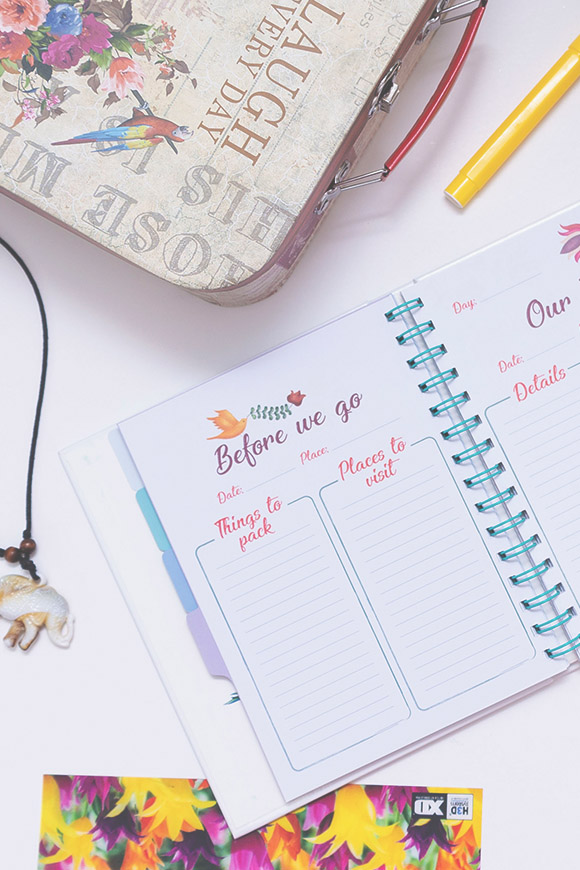 LAUGH
VERY DAY
HOSE ME
HIS
Before we go
Date:
Place:
Things to
pack
Places to
visit
Day:
Our
Date:
Details
XD
H3D